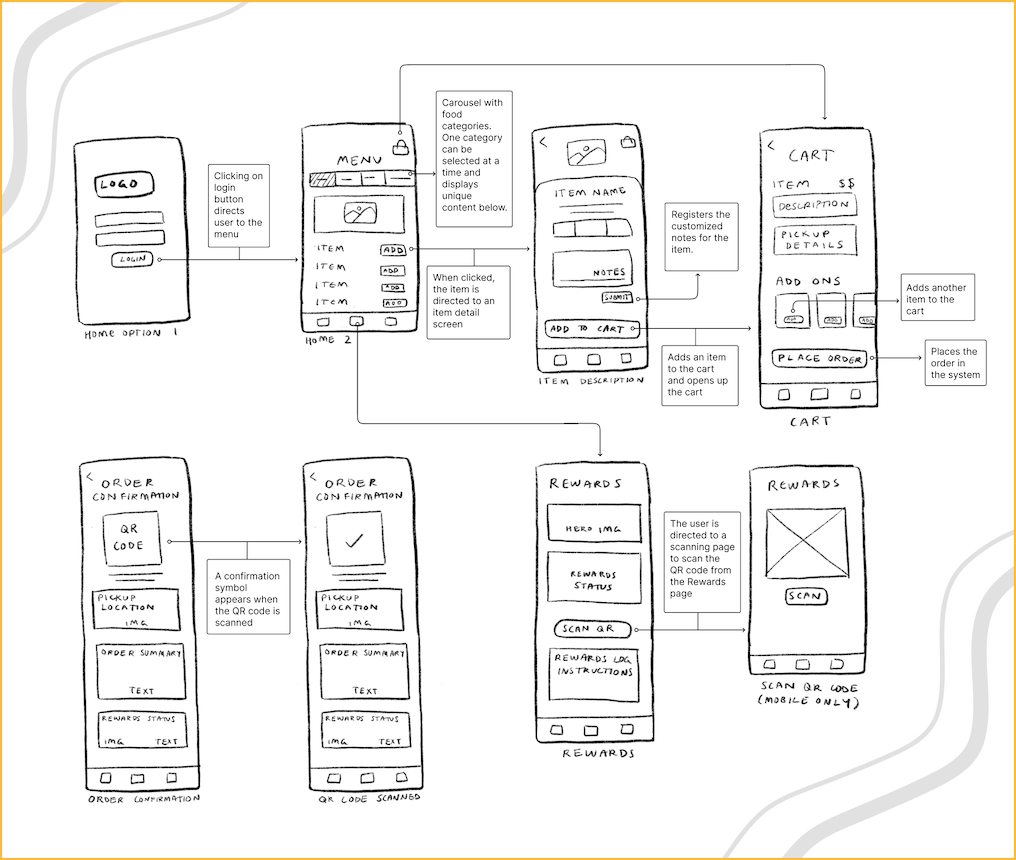 LOGO
LOGIN
HOME OPTION 1
Clicking on
login
button
directs
user to the
menu
MENU
ITEM ADD
ITEM ADD
ITEM ADD
ITEM ADD
HOME 2
Carousel with
food
categories.
One category
can be
selected at a
time and
displays
unique
content below.
When clicked,
the item is
directed to an
item detail
screen
ITEM NAME
NOTES
SUBMIT
ADD TO CART
ITEM DESCRIPTION
Registers the
customized
notes for the
item.
Adds an item
to the cart
and opens up
the cart
CART
ITEM $$
DESCRIPTION
PICKUP
DETAILS
ADD ONS
ADD ADD ADD
PLACE ORDER
CART
Adds another
item to the
cart
Places the
order in
the system
ORDER
CONFIRMATION
QR
CODE
PICKUP
LOCATION
IMG
ORDER SUMMARY
TEXT
REWARDS STATUS
IMG TEXT
ORDER CONFIRMATION
A confirmation
symbol
appears when
the QR code is
scanned
ORDER
CONFIRMATION
PICKUP
LOCATION
IMG
ORDER SUMMARY
TEXT
REWARDS STATUS
IMG TEXT
QR CODE SCANNED
REWARDS
HERO IMG
REWARDS
STATUS
SCAN QR
REWARDS LOG
INSTRUCTIONS
REWARDS
The user is
directed to a
scanning page
to scan the
QR code from
the Rewards
page
REWARDS
SCAN
SCAN QR CODE
(MOBILE ONLY)